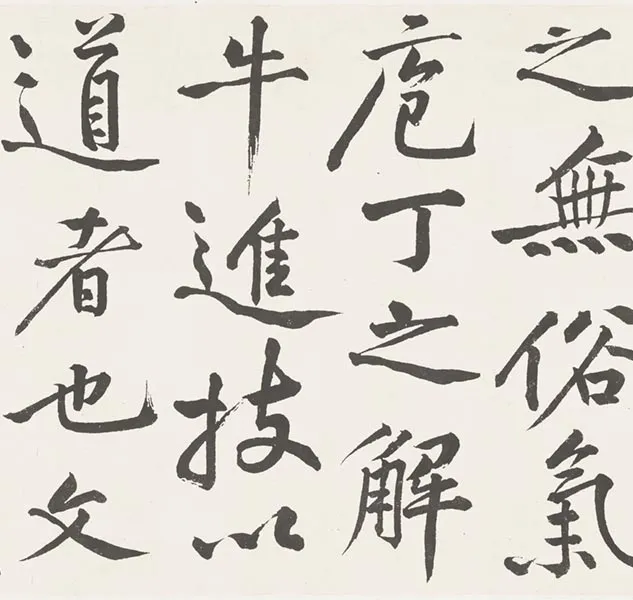 之無俗氣
庖丁之解
牛進技以
道者也文